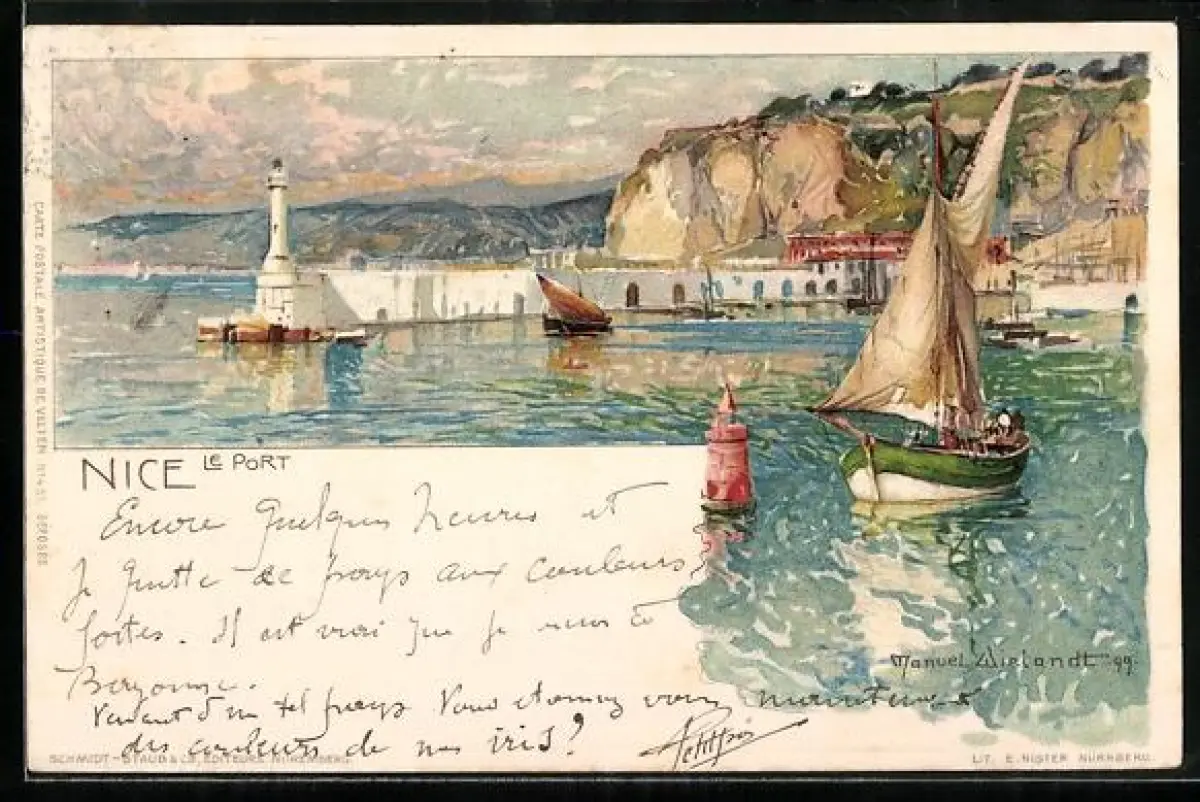 NICE LE PORT
Encore quelques heures et
je quitte ce pays aux couleurs
fortes. Il est vrai que je
Bayonne.
Venant d'un tel pays vous étonnez vous maintenant
des couleurs de nos iris?
Manuel Wielandt 99.
CARTE POSTALE ARTISTIQUE DE VELTEN No 451 DEPOSÉE
SCHMIDT-STAUB & Co, EDITEURS NUREMBERG.
LIT. E. NISTER NÜRNBERG.